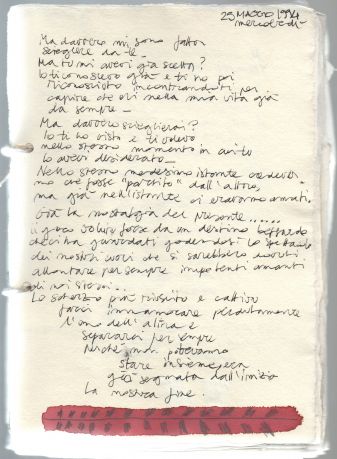 25 MAGGIO 1994
mercoledì
Ma davvero mi sono fatta
scegliere da te_
Ma tu mi avevi già scelto?
Io ti conoscevo già e ti ho poi
riconosciuto incontrandoti per
capire che eri nella mia vita già
da sempre_
Ma davvero sceglierai?
Io ti ho visto e ti volevo
nello stesso momento in cui
lo avevi desiderato_
Nello stesso medesimo istante
mo che fosse "partito" dall'altro,
ma già nell'istante ci eravamo amati.
Già la nostalgia del presente......
gioco voluto forse da un destino beffardo
che ci ha guardati godendosi lo spettacolo
dei nostri cuori che si sarebbero
per sempre impotenti
di noi stessi...
Lo scherzo più riuscito e cattivo
farci innamorare perdutamente
l'uno dell'altra e
separarci per sempre
Perché non potevamo
stare insieme, era
già segnata dall'inizio
la nostra fine.